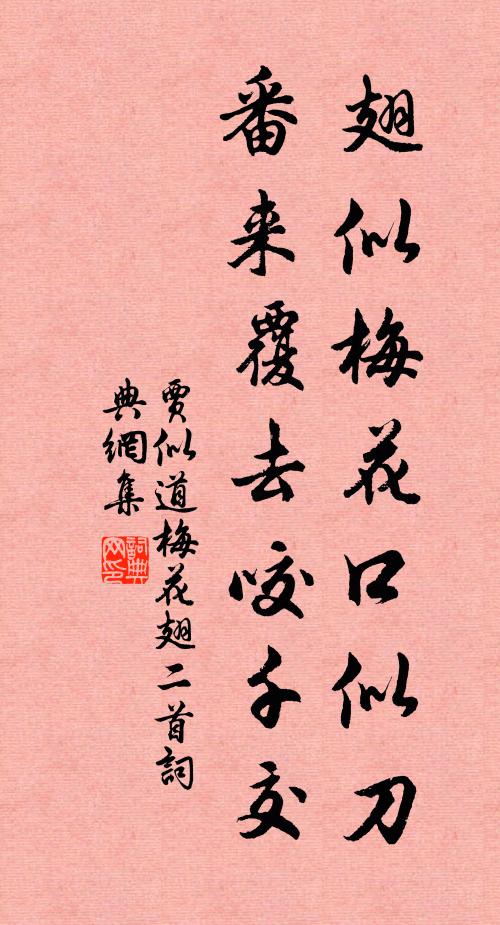 翅似梅花口似刀
番来覆去咬千交
賈似道梅花翅二首詞
典網集
詞典
网印